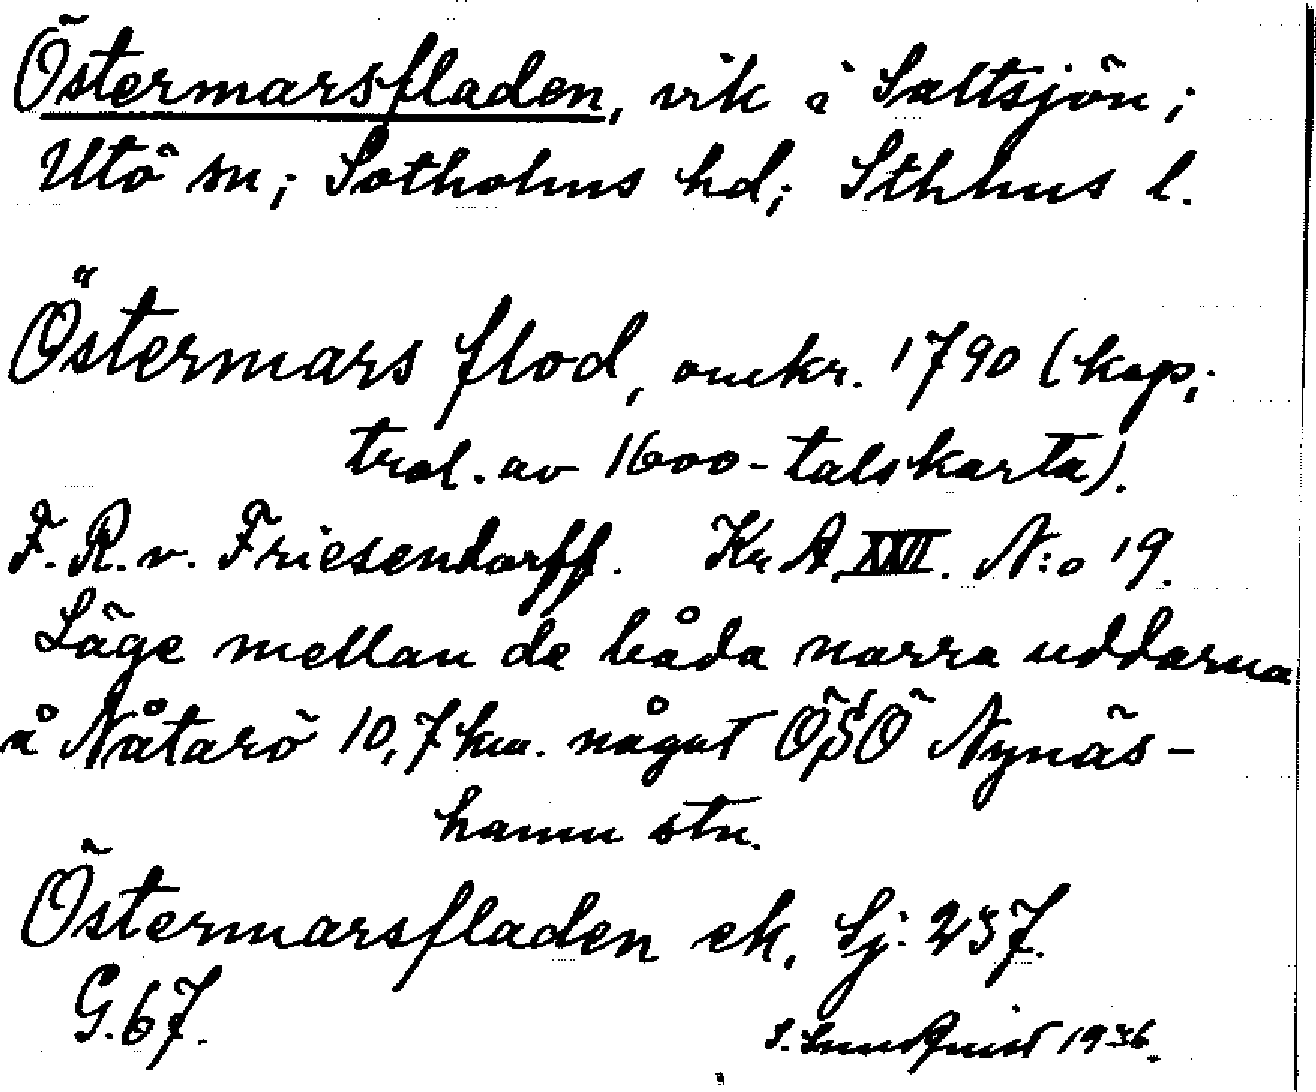 Östermarsfladen, vik i Saltsjön;
Utö sn; Sotholms hd; Sthlms l.
Östermars flod, omkr. 1790 (kop;
trol. av 1600-talskarta).
F. R. v. Friesendorff. Kr A XXII. N:o 19.
Läge mellan de båda norra uddarna
å Nåtarö 10,7 km. något ÖSÖ Nynäs-
hamn stn.
Östermarsfladen ek. Sj: 237.
G. 67.
S. Sundquist 1936.